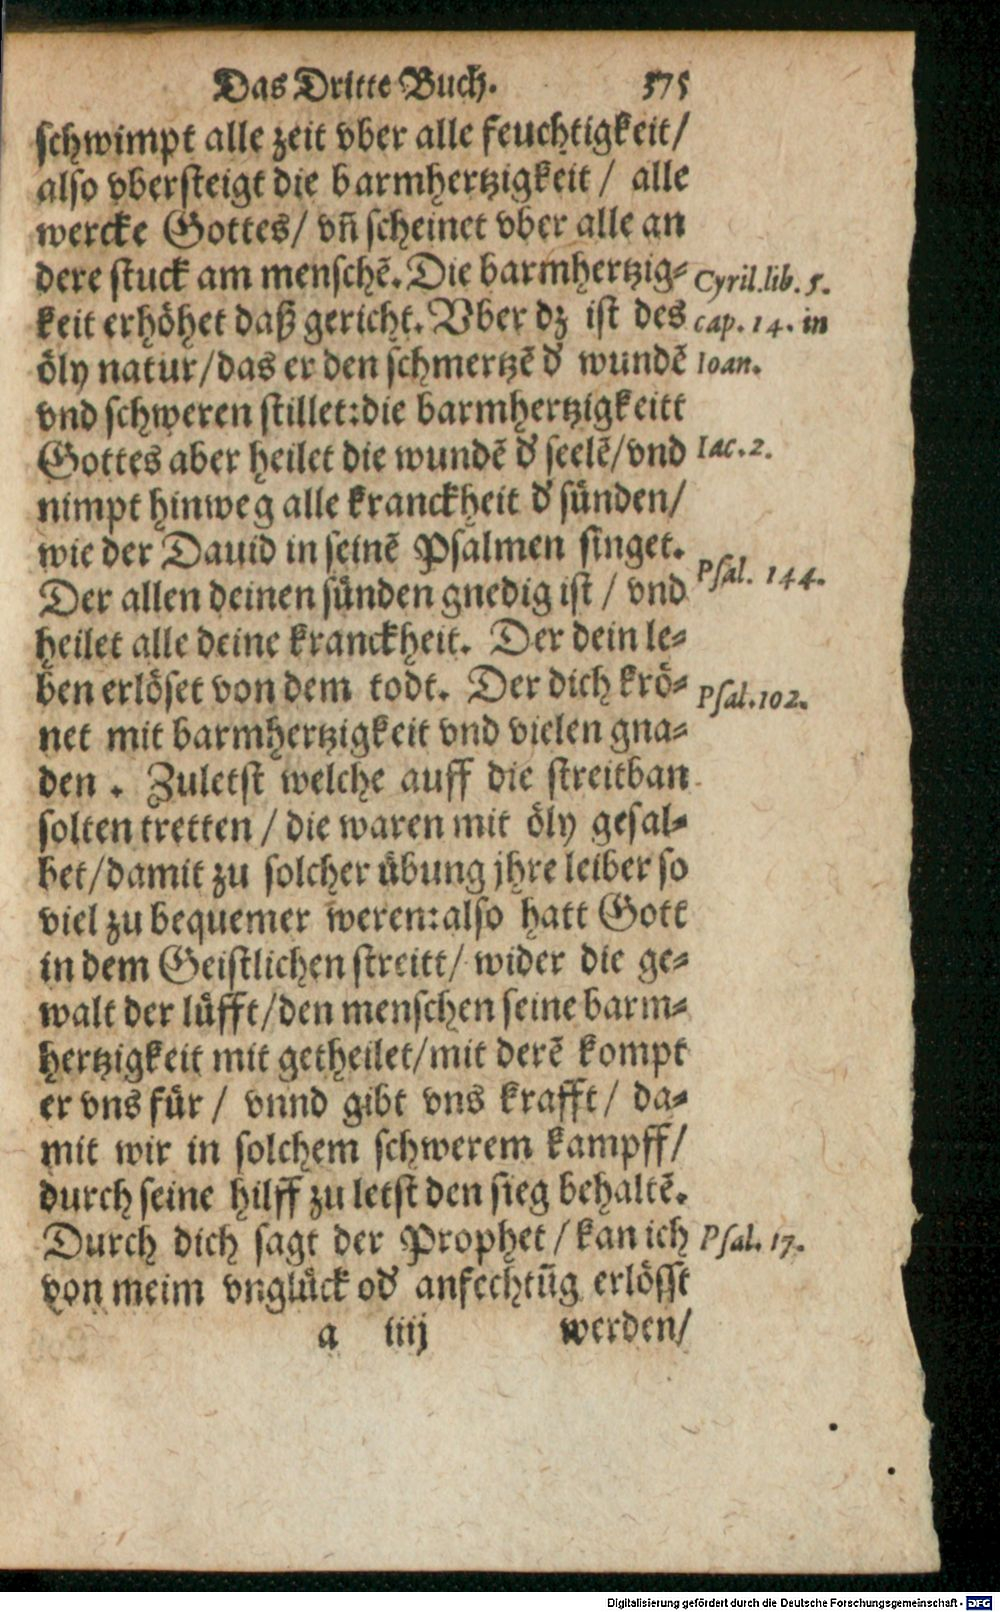 Das Dritte Buch. 575
schwimpt alle zeit vber alle feuchtigkeit/
also vbersteigt die barmhertzigkeit / alle
wercke Gottes/ vñ scheinet vber alle an
dere stuck am menschē. Die barmhertzig-
Cyril. lib. 5.
keit erhöhet daß gericht. Vber dz ist des
cap. 14. in
öly natur/das er den schmertzē d' wundē
Ioan.
vnd schweren stillet:die barmhertzigkeitt
Gottes aber heilet die wundē d' seelē/vnd
Iac. 2.
nimpt hinweg alle kranckheit d' sünden/
wie der Dauid in seinē Psalmen singet.
Psal. 144.
Der allen deinen sünden gnedig ist / vnd
heilet alle deine kranckheit. Der dein le-
ben erlöset von dem todt. Der dich krö-
Psal. 102.
net mit barmhertzigkeit vnd vielen gna-
den. Zuletst welche auff die streitban
solten tretten / die waren mit öly gesal-
bet/damit zu solcher übung jhre leiber so
viel zu bequemer weren:also hatt Gott
in dem Geistlichen streitt/ wider die ge-
walt der lüfft/den menschen seine barm-
hertzigkeit mit getheilet/mit derē kompt
er vns für / vnnd gibt vns krafft/ da-
mit wir in solchem schwerem kampff/
durch seine hilff zu letst den sieg behaltē.
Durch dich sagt der Prophet / kan ich
Psal. 17.
von meim vnglück od' anfechtūg erlösst
a iiij werden/
Digitalisierung gefördert durch die Deutsche Forschungsgemeinschaft - DFG